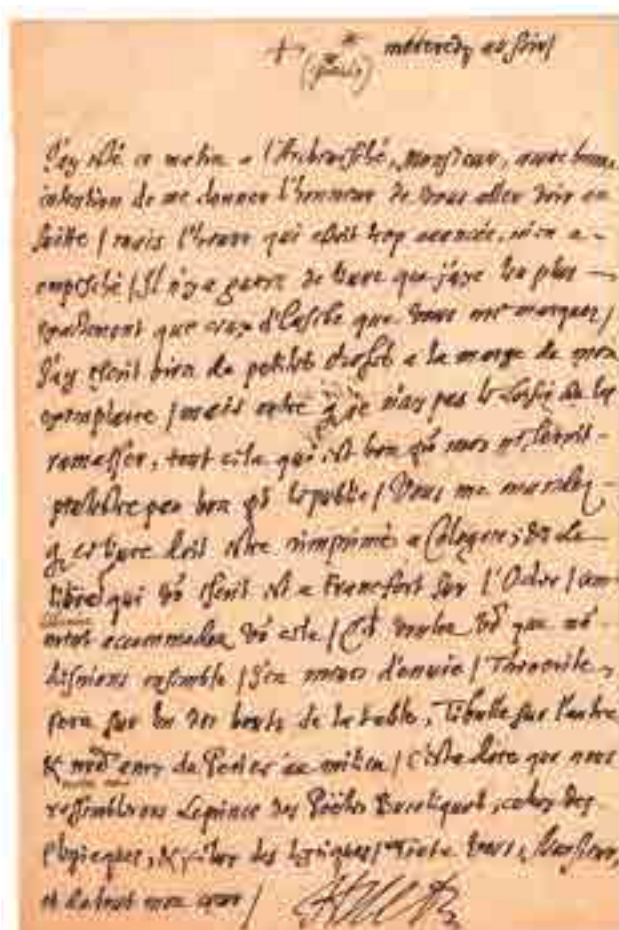 mercredy au soir
J'ay esté ce matin a l'Archevesché, Monsieur, avec bonne
intention de me donner l'honneur de vous aller voir en
suitte / mais l'heure qui estoit trop avancée, m'en a
empesché / Il n'y a guere de livre que j'aye lu plus
que ceux d' que vous me marquez /
J'ay escrit bien de petites choses a la marge de mon
exemplaire / mais outre que je n'ay pas le loisir de les
ramasser, tout cela qui est bon pr moy ne seroit
peutestre pas bon pr le public / Vous me mandez
q ce livre doit estre rimprimé a Cologne, & le
libre qui vs escrit est a Francfort sur l'Oder /
accommodez vs cela /
disnions ensemble / J'en meurs d'envie / Theocrite
sera sur un des bouts de la table, Tibulle sur l'autre
& au milieu / c'est a dire que nous
le prince des Poëtes Bucoliques, celuy des
Elegiaques, & celuy des Lyriques / Tout a vous, Monsieur,
et de tout mon cœur /